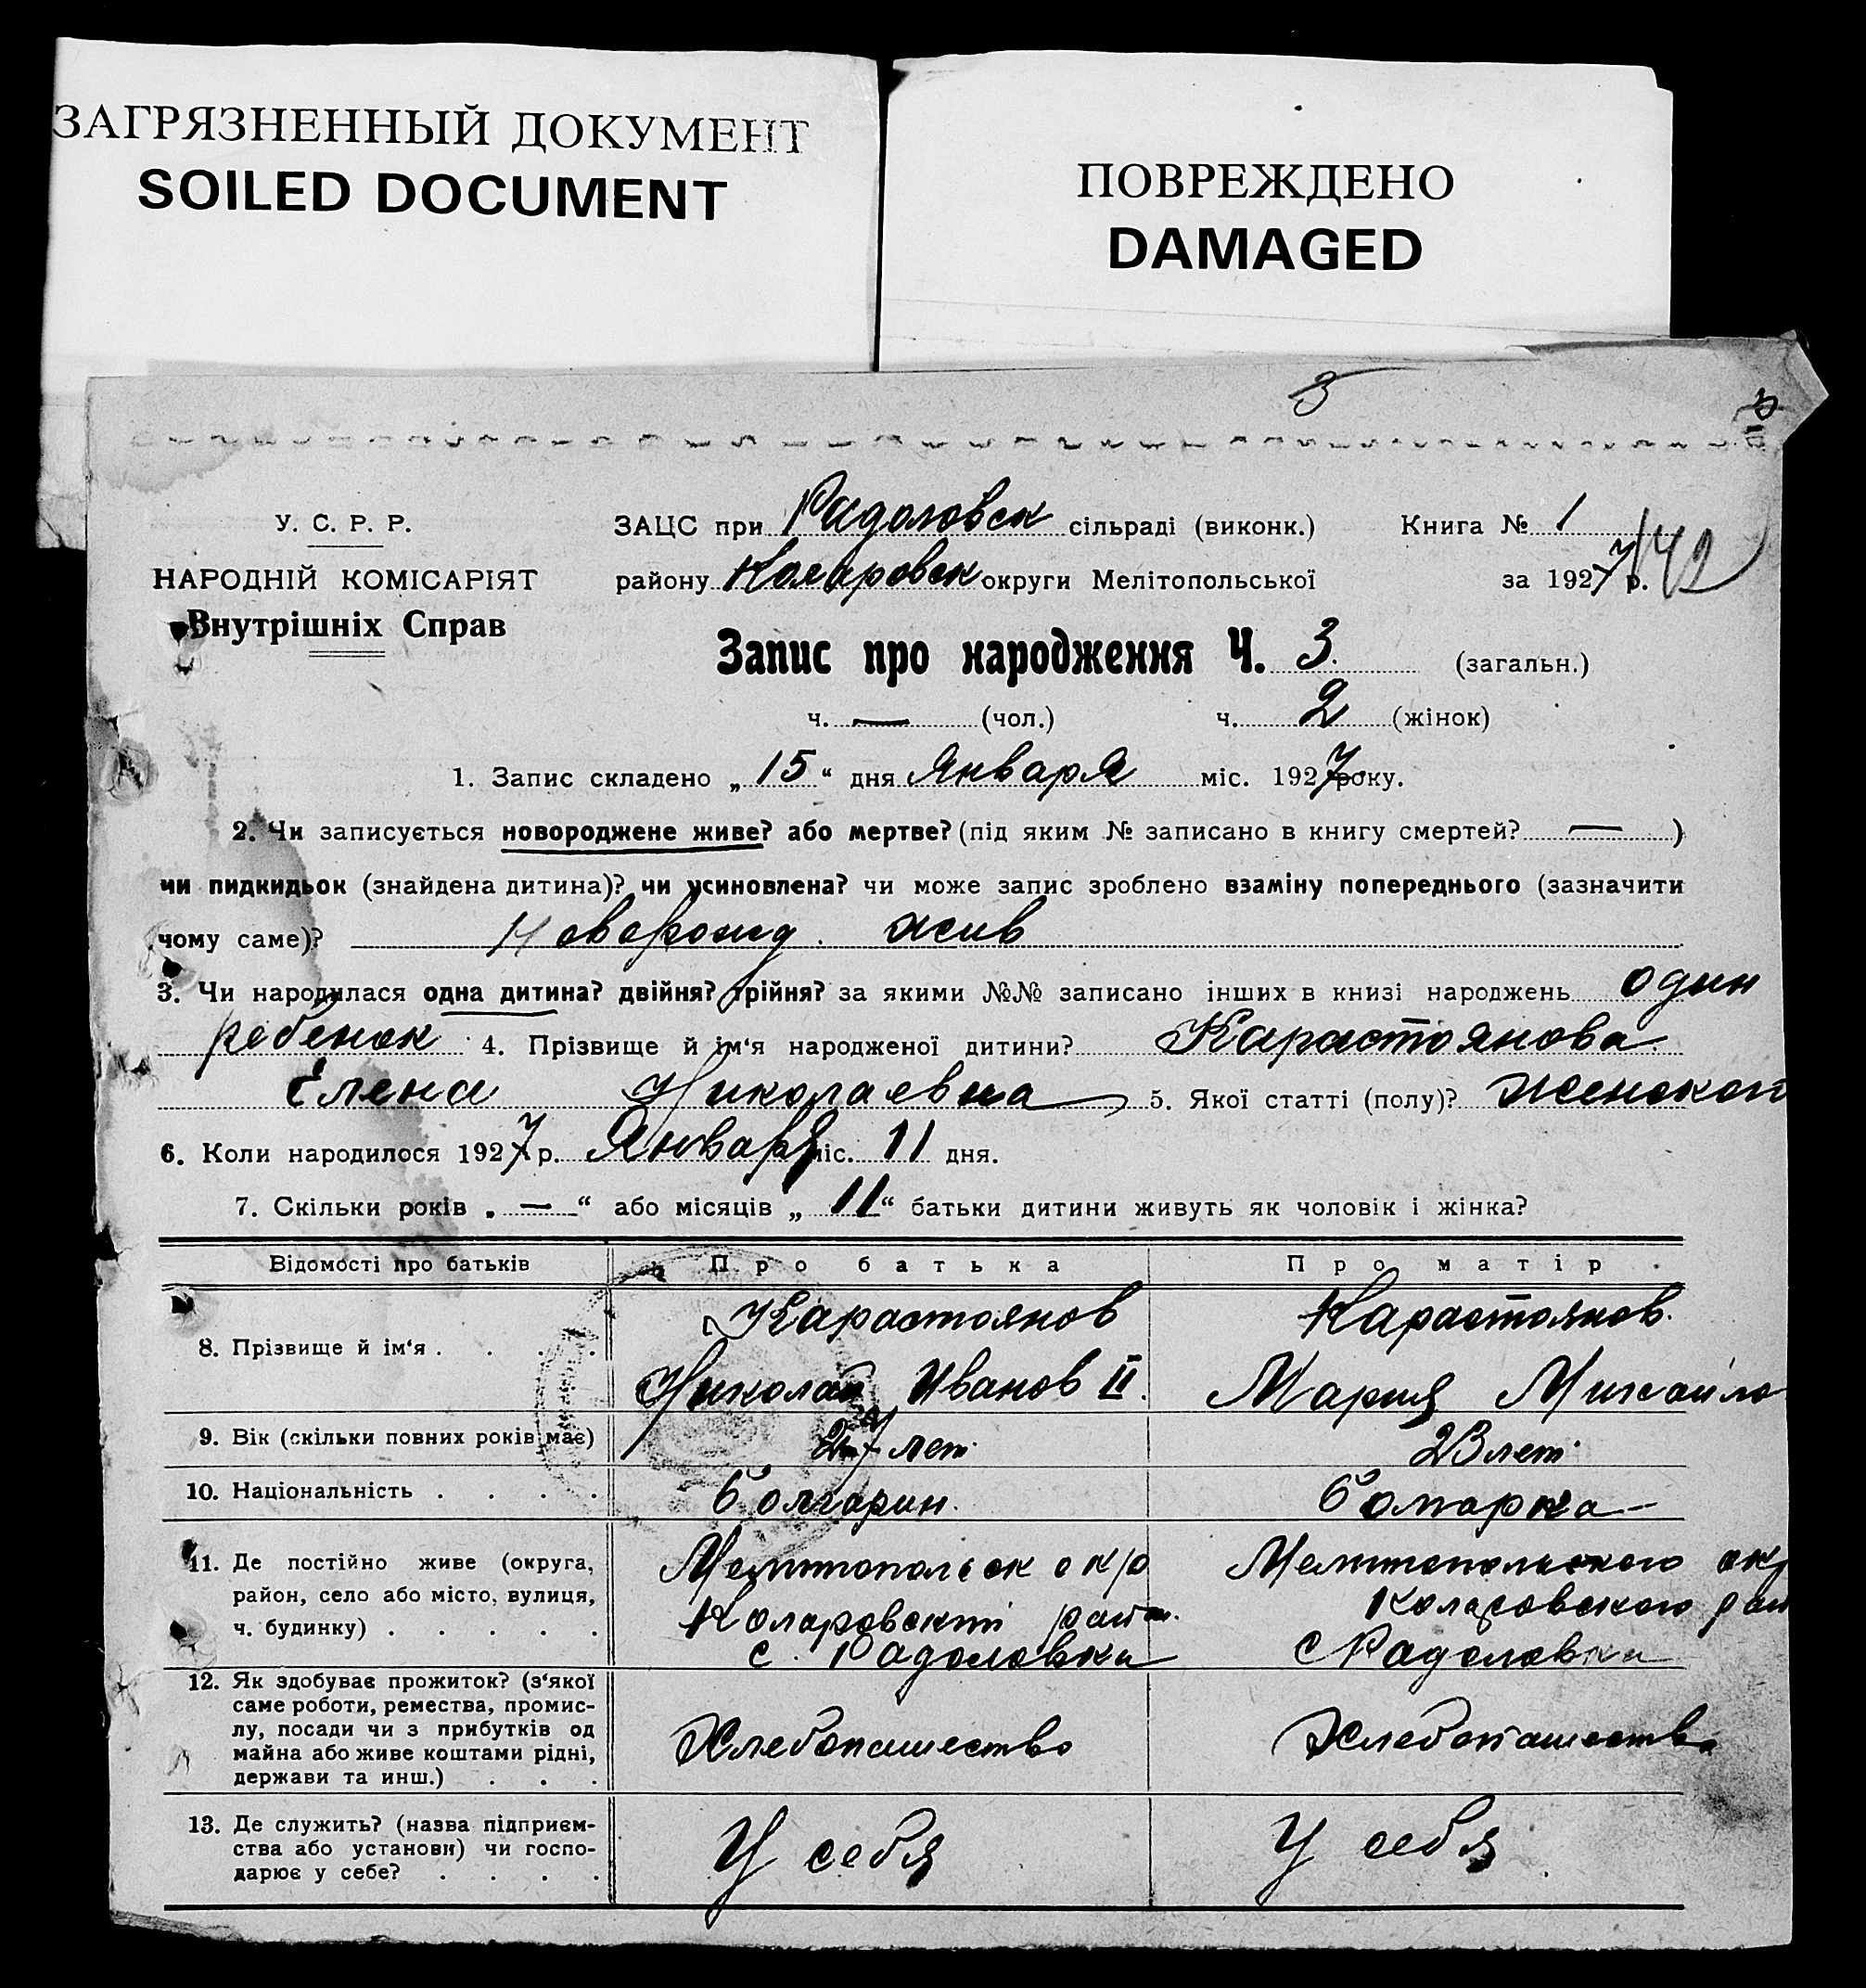 ЗАГРЯЗНЕННЫЙ ДОКУМЕНТ
SOILED DOCUMENT
ПОВРЕЖДЕНО
DAMAGED
3
У. С. Р. Р.
НАРОДНІЙ КОМІСАРІЯТ
Внутрішніх Справ
ЗАЦС при Радоловск сільраді (виконк.) Книга № 1
району Коларовск округи Мелітопольської за 1927 р. 142
Запис про народження Ч. 3. (загальн.)
ч. — (чол.) ч. 2 (жінок)
1. Запис складено „ 15 “ дня Января міс. 1927 року.
2. Чи записується новороджене живе? або мертве? (під яким № записано в книгу смертей? — )
чи пидкидьок (знайдена дитина)? чи усиновлена? чи може запис зроблено взаміну попереднього (зазначити
чому саме)? Новорожд. жив
3. Чи народилася одна дитина? двійня? трійня? за якими №№ записано інших в книзі народжень один
ребенок 4. Прізвище й ім‘я народженої дитини? Карастоянова
Елена Николаевна 5. Якої статті (полу)? Женского
6. Коли народилося 1927 р. Января міс. 11 дня.
7. Скільки років „ — “ або місяців „ 11 “ батьки дитини живуть як чоловік і жінка?
Відомості про батьків Про батька Про матір
8. Прізвище й ім‘я . . . . Карастоянов Николай Иванов II. Карастоянов. Мария Михайло
9. Вік (скільки повних років має) 27 лет. 23 лет.
10. Національність . . . . Болгарин. Болгарка —
11. Де постійно живе (округа, Мелитопольск окр Мелитопольского окр
район, село або місто, вулиця, Коларовский район. Коларовского рай
ч. будинку) . . . . . с. Радоловка с Радоловка
12. Як здобуває прожиток? (з‘якої
саме роботи, ремества, промис-
лу, посади чи з прибутків од
майна або живе коштами рідні, Хлебопашество Хлебопашество
держави та инш.) . . .
13. Де служить? (назва підприєм-
ства або установи) чи госпо- У себя У себя
дарює у себе? . . . .